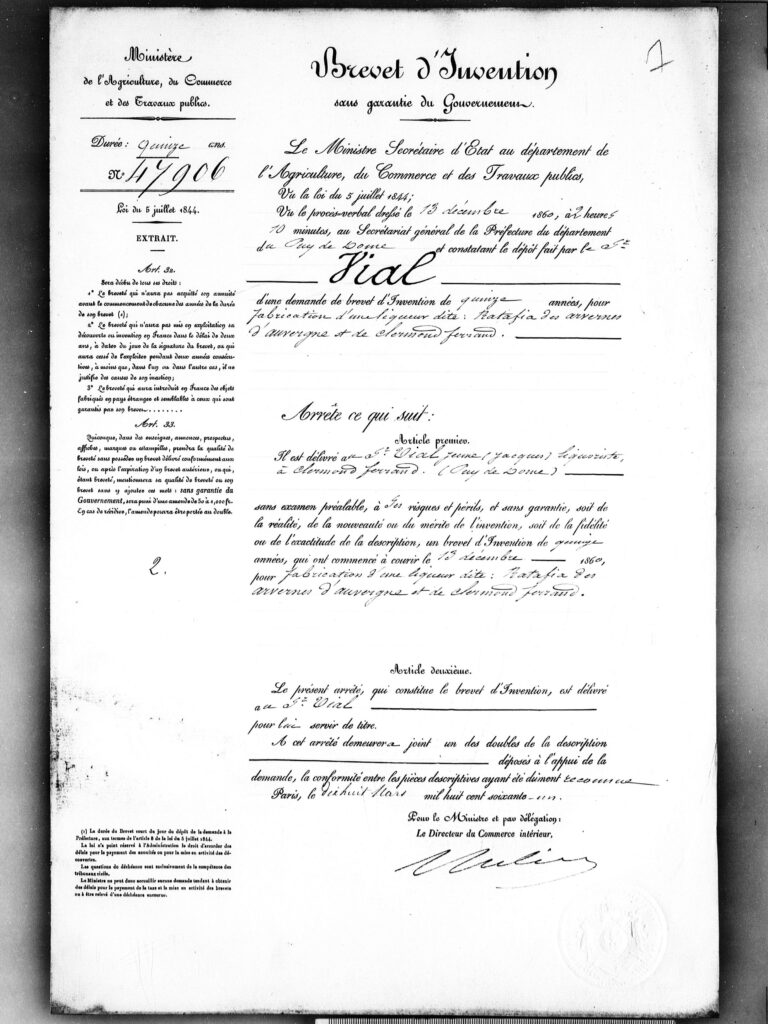 Ministère
de l'Agriculture, du Commerce
et des Travaux publics.
Durée : quinze ans.
N° 47906
Loi du 5 juillet 1844.
EXTRAIT.
Art. 32.
Sera déchu de tous ses droits :
1° Le breveté qui n'aura pas acquitté son annuité
avant le commencement de chacune des années de la durée
de son brevet (1);
2° Le breveté qui n'aura pas mis en exploitation sa
découverte ou invention en France dans le délai de deux
ans, à dater du jour de la signature du brevet, ou qui
aura cessé de l'exploiter pendant deux années consécu-
tives, à moins que, dans l'un ou dans l'autre cas, il ne
justifie des causes de son inaction;
3° Le breveté qui aura introduit en France des objets
fabriqués en pays étranger et semblables à ceux qui sont
garantis par son brevet........
Art. 33.
Quiconque, dans des enseignes, annonces, prospectus,
affiches, marques ou estampilles, prendra la qualité de
breveté sans posséder un brevet délivré conformément aux
lois, ou après l'expiration d'un brevet antérieur, ou qui,
étant breveté, mentionnera sa qualité de breveté ou son
brevet sans y ajouter ces mots : sans garantie du
Gouvernement, sera puni d'une amende de 50 à 1,000 fr.
En cas de récidive, l'amende pourra être portée au double.
2.
(1) La durée du Brevet court du jour du dépôt de la demande à la
Préfecture, aux termes de l'article 8 de la loi du 5 juillet 1844.
La loi n'a point réservé à l'Administration le droit d'accorder des
délais pour le payement des annuités ou pour la mise en activité des dé-
couvertes.
Les questions de déchéance sont exclusivement de la compétence des
tribunaux civils.
Le Ministre ne peut donc accueillir aucune demande tendant à obtenir
des délais pour le payement de la taxe et la mise en activité des brevets
ou à être relevé d'une déchéance encourue.
1
Brevet d'Invention
sans garantie du Gouvernement.
Le Ministre Secrétaire d'Etat au département de
l'Agriculture, du Commerce et des Travaux publics,
Vu la loi du 5 juillet 1844;
Vu le procès-verbal dressé le 13 décembre 1860, à 2 heures
10 minutes, au Secrétariat général de la Préfecture du département
du Puy de Dome et constatant le dépôt fait par le Sr
Vial
d'une demande de brevet d'Invention de quinze années, pour
fabrication d'une liqueur dite : Ratafia des arvernes
d'auvergne et de clermond ferrand.
Arrête ce qui suit :
Article premier.
Il est délivré au Sr Vial jeune (Jacques) liquoriste,
à Clermond ferrand. (Puy de Dome)
sans examen préalable, à ses risques et périls, et sans garantie, soit de
la réalité, de la nouveauté ou du mérite de l'invention, soit de la fidélité
ou de l'exactitude de la description, un brevet d'Invention de quinze
années, qui ont commencé à courir le 13 décembre 1860,
pour fabrication d'une liqueur dite : Ratafia des
arvernes d'auvergne et de clermond ferrand.
Article deuxième.
Le présent arrêté, qui constitue le brevet d'Invention, est délivré
au Sr Vial
pour lui servir de titre.
A cet arrêté demeurera joint un des doubles de la description
déposés à l'appui de la
demande, la conformité entre les pièces descriptives ayant été dûment reconnue
Paris, le dixhuit Mars mil huit cent soixante-un.
Pour le Ministre et par délégation :
Le Directeur du Commerce intérieur,